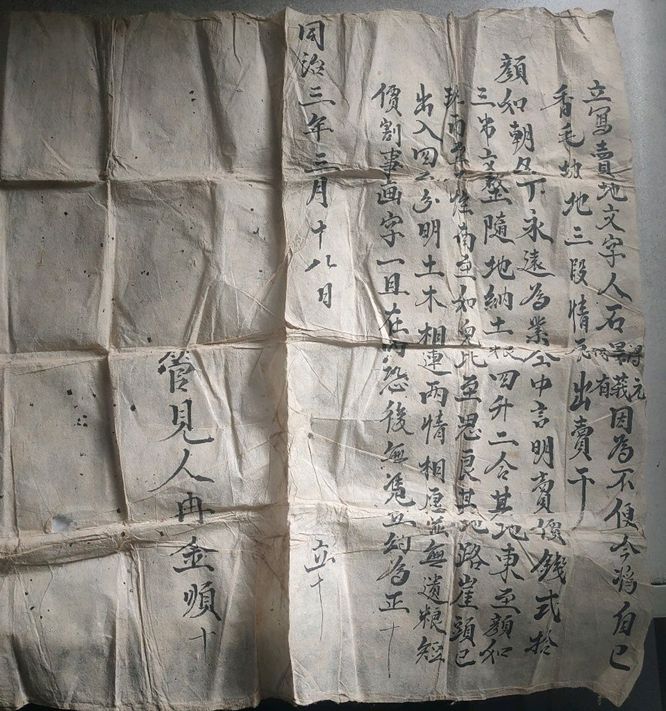 立寫賣地文字人石得元景義因為不便今將自己
香毛坡地三段情愿出賣于
顏如朝名下永遠為業仝中言明賣價錢弍拾
三串文整隨地納土粮四升二合其地東至顏如
西至崖南至如皃北至思良其地路崖頭已
出入四至分明土木相連兩情相愿並無遺粮短
價割事画字一且在內恐後無凴立約為正十
同治三年三月十八日
立十
管見人冉金順十